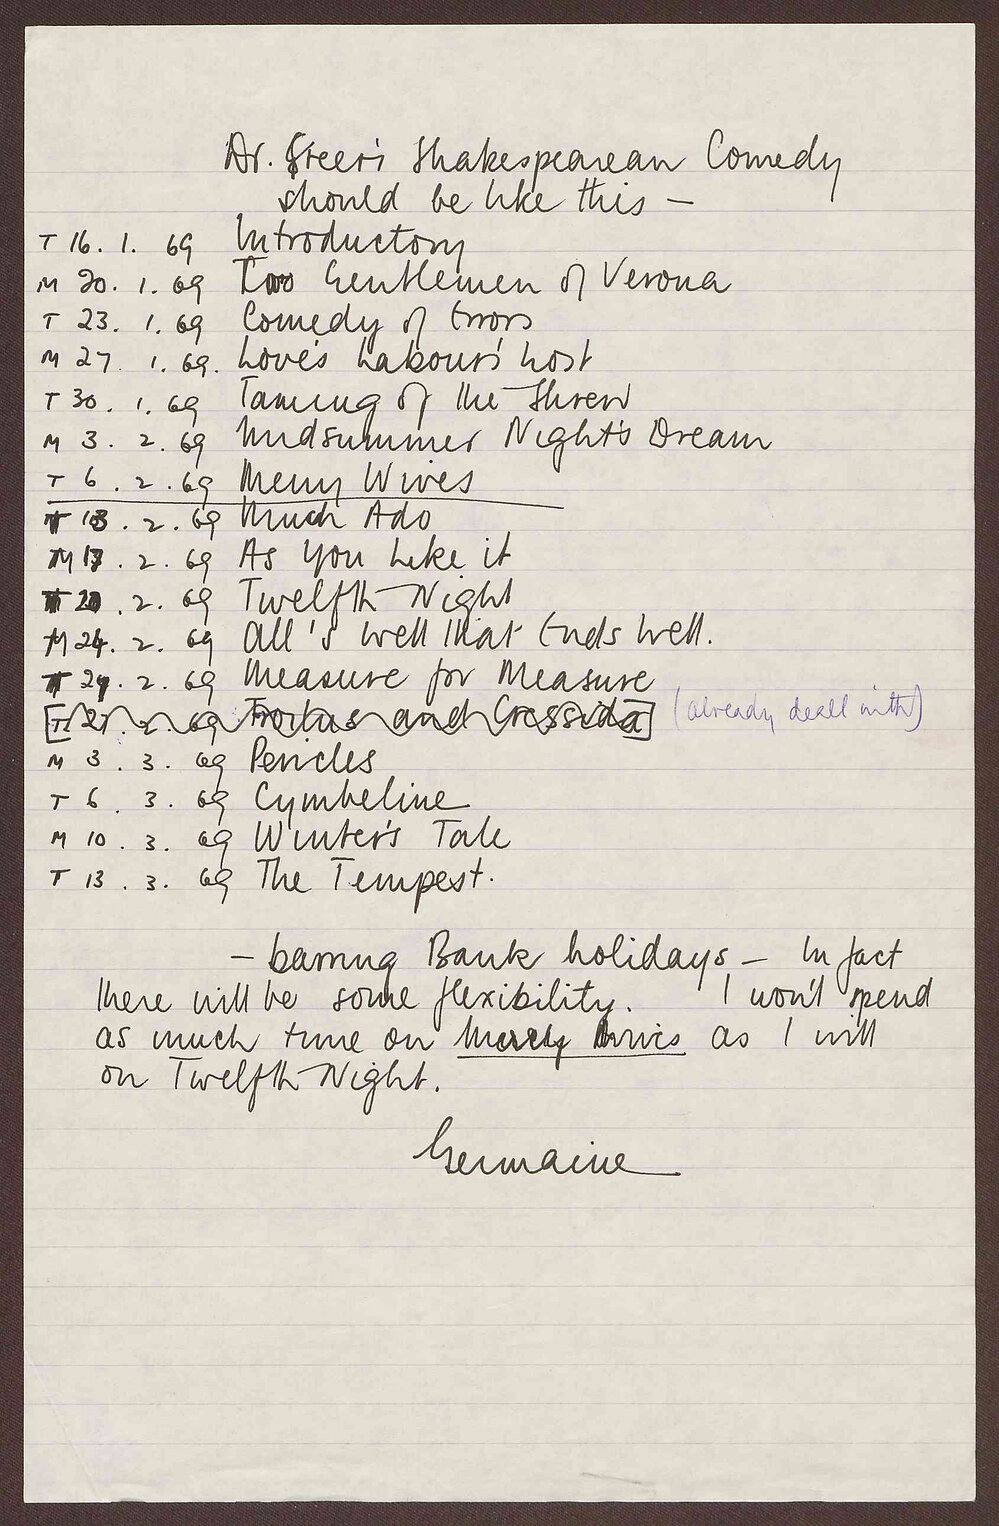 Dr. Greer's Shakespearean Comedy
should be like this –
T 16. 1. 69 Introductory
M 20. 1. 69 Two Gentlemen of Verona
T 23. 1. 69 Comedy of Errors
M 27 1. 69. Love's Labour's Lost
T 30. 1. 69 Taming of the Shrew
M 3. 2. 69 Midsummer Night's Dream
T 6. 2. 69 Merry Wives
T 13. 2. 69 Much Ado
M 17. 2. 69 As You Like it
T 20. 2. 69 Twelfth Night
M 24. 2. 69 All's Well that Ends Well.
T 27. 2. 69 Measure for Measure
[T 27. 2. 69 Troilus and Cressida] (already dealt with)
M 3. 3. 69 Pericles
T 6. 3. 69 Cymbeline
M 10. 3. 69 Winter's Tale
T 13. 3. 69 The Tempest.
– barring Bank holidays – In fact
there will be some flexibility. I won't spend
as much time on Merry Wives as I will
on Twelfth Night.
Germaine